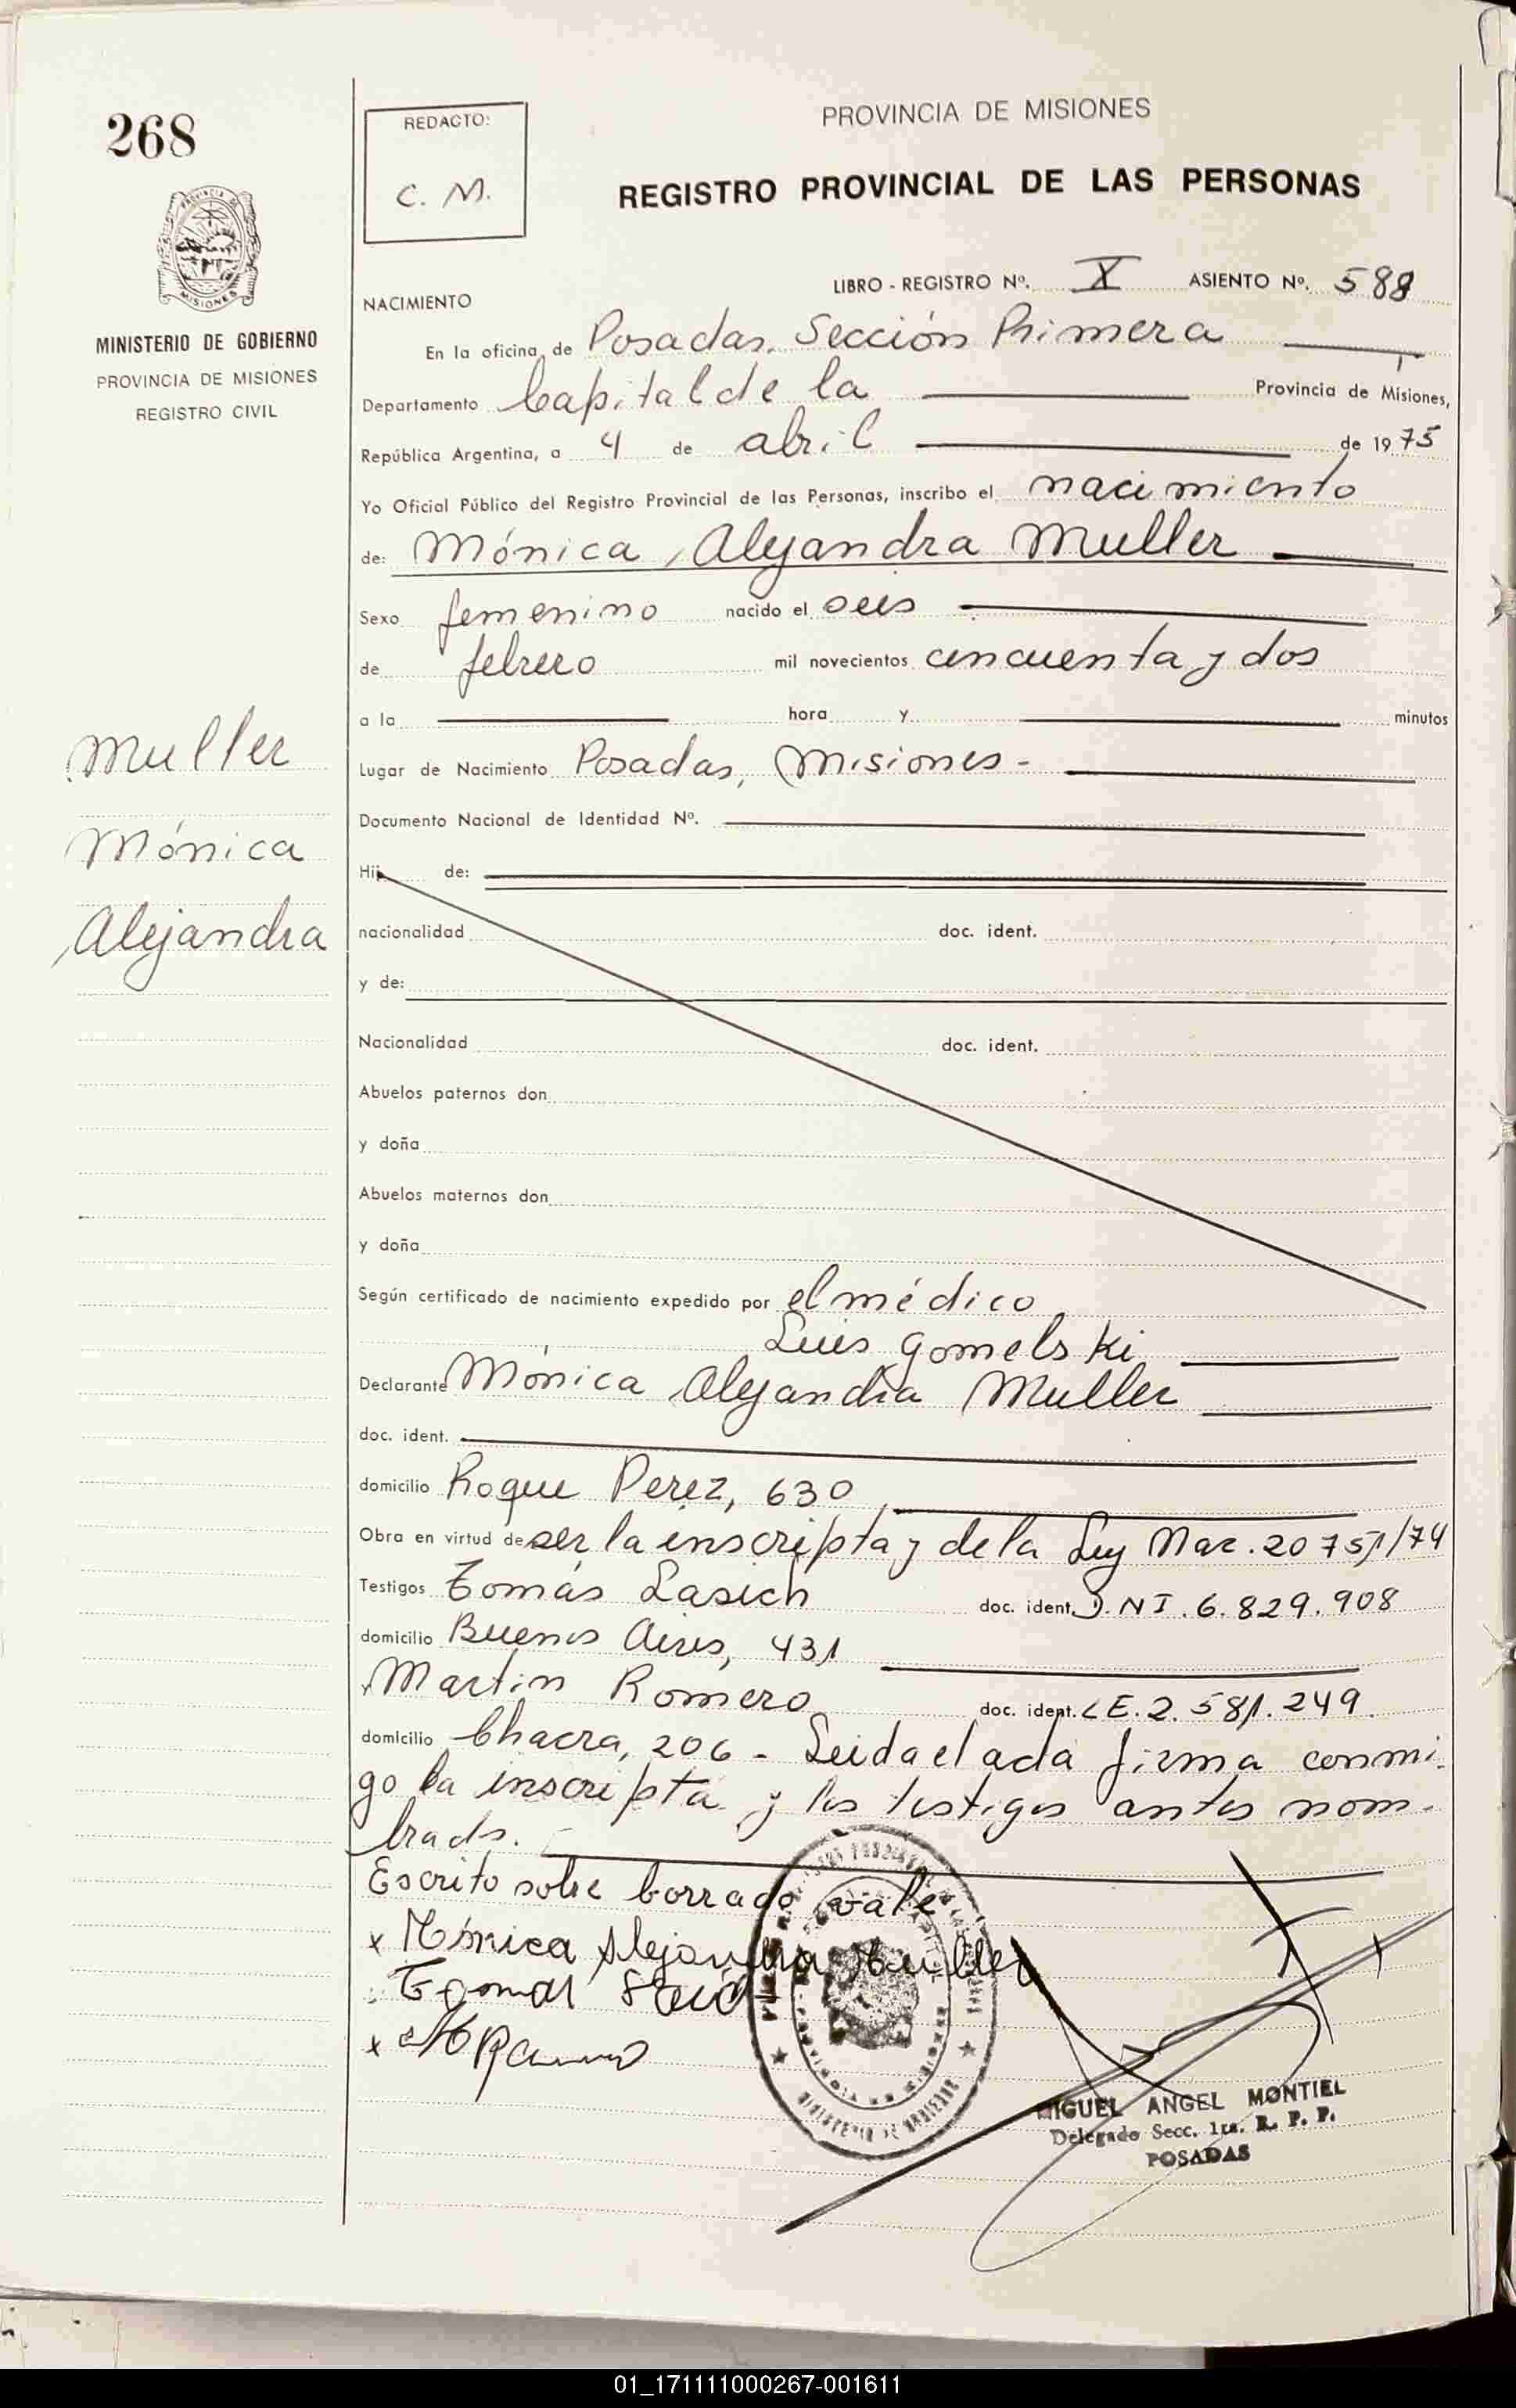 268
MINISTERIO DE GOBIERNO
PROVINCIA DE MISIONES
REGISTRO CIVIL
Muller
Mónica
Alejandra
REDACTO:
C. M.
PROVINCIA DE MISIONES
REGISTRO PROVINCIAL DE LAS PERSONAS
LIBRO - REGISTRO Nº. X ASIENTO Nº. 588
NACIMIENTO
En la oficina de Posadas, Sección Primera
Departamento Capital de la Provincia de Misiones,
República Argentina, a 4 de abril de 1975
Yo Oficial Público del Registro Provincial de las Personas, inscribo el nacimiento
de: Mónica Alejandra Muller
Sexo femenino nacido el seis
de febrero mil novecientos cincuenta y dos
a la hora y minutos
Lugar de Nacimiento Posadas, Misiones -
Documento Nacional de Identidad Nº.
Hij de:
nacionalidad doc. ident.
y de:
Nacionalidad doc. ident.
Abuelos paternos don
y doña
Abuelos maternos don
y doña
Según certificado de nacimiento expedido por el médico
Luis Gomelski
Declarante Mónica Alejandra Muller
doc. ident.
domicilio Roque Perez, 630
Obra en virtud de ser la inscripta y de la Ley Nac. 20751/74
Testigos Tomás Lasich doc. ident. D.N I. 6.829.908
domicilio Buenos Aires, 431
Martin Romero doc. ident. L E. 2. 581. 249
domicilio Chacra, 206 - Leida el acta firma conmi-
go la inscripta y los testigos antes nom-
brads.
Escrito sobre borrado vale
x Mónica Alejandra Muller
x
MIGUEL ANGEL MONTIEL
Delegado Secc. 1ra. R. P. P.
POSADAS
01_171111000267-001611